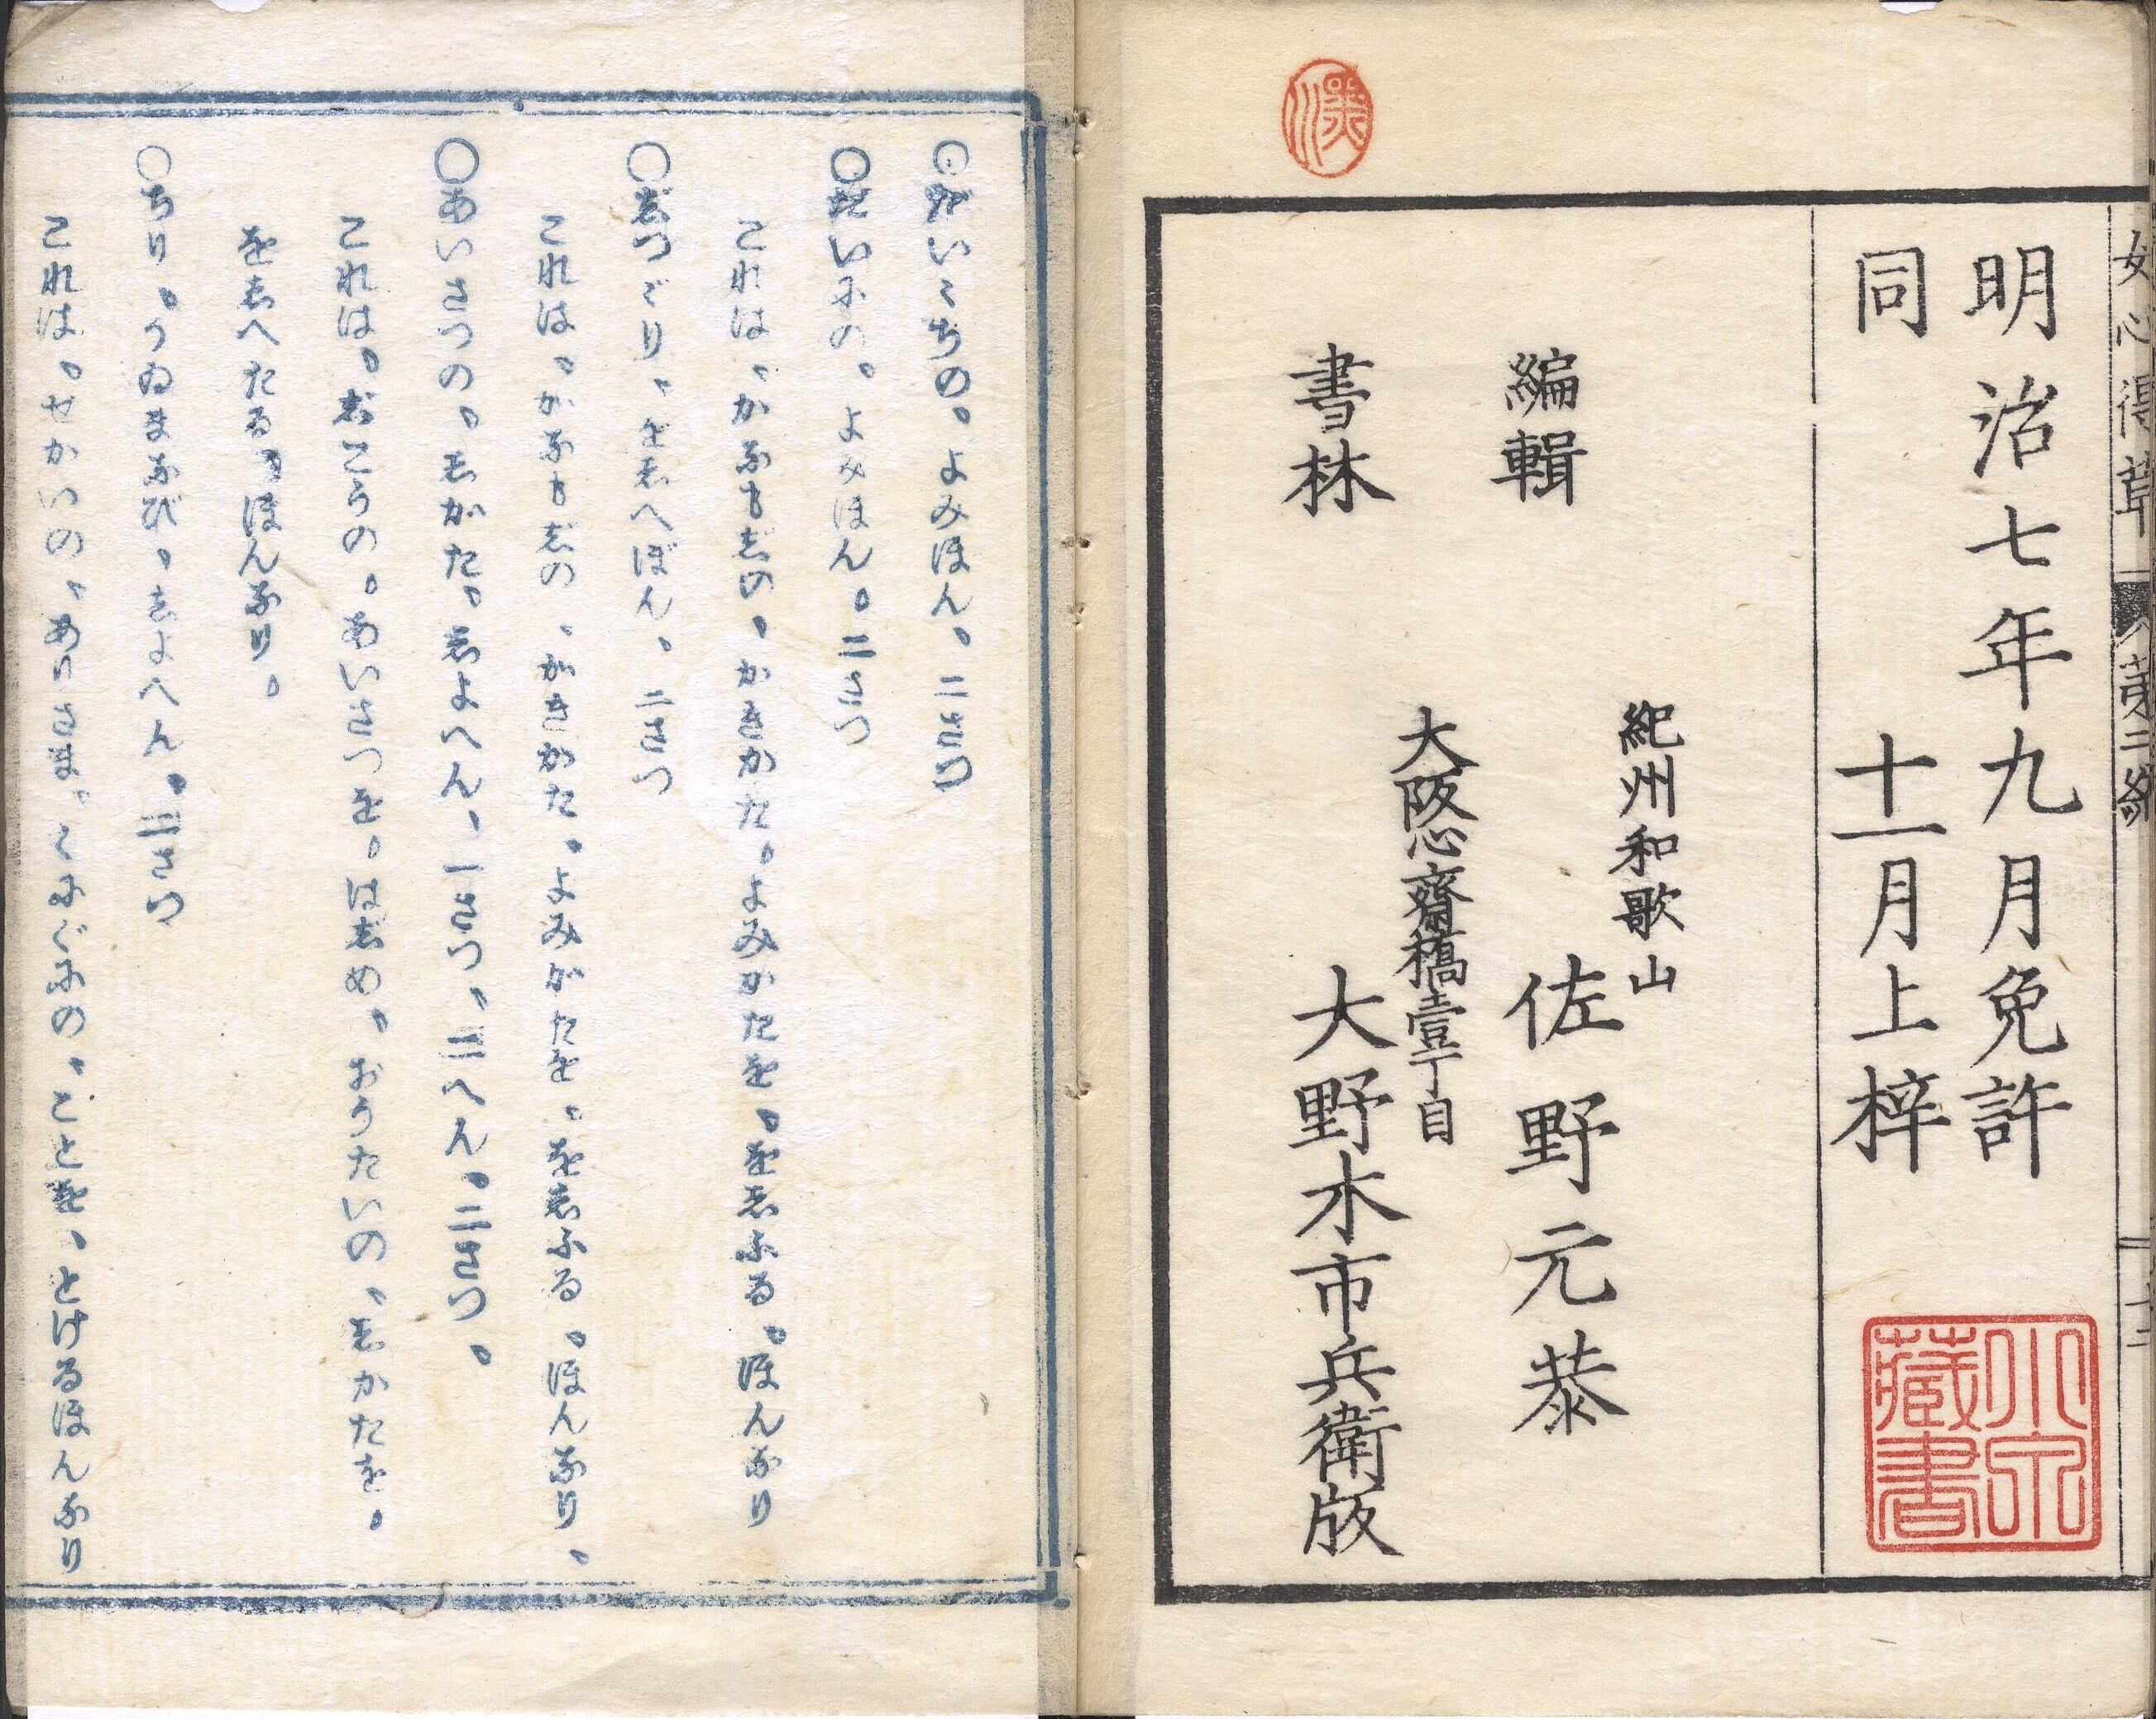 女心得草
第二編
十二
明治七年九月免許
同 十一月上梓
小宗
藏書
編輯 紀州和歌山 佐野元恭
書林 大阪心齋橋壹丁目 大野木市兵衛版
○だいいちの。よみほん。二さつ
○だいにの。よみほん。二さつ
これは、かなもじの、かきかた。よみかたを。をしふる。ほんなり
○しつぐり、をしへぼん、二さつ
これは。かなもじの、かきかた。よみかたを。をしふる。ほんなり、
○あいさつの。しかた。しよへん、一さつ、二へん。二さつ。
これは。しこうの。あいさつを。はじめ。おうたいの、しかたを。
をしへたる。ほんなり。
○ちり。うゐまなび。しよへん。三さつ
これは。せかいの、ありさま。くにぐにの。ことを。とけるほんなり